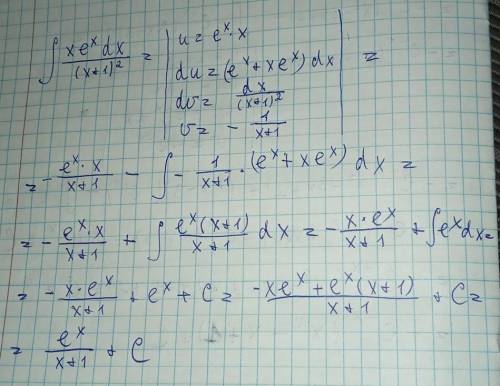 ∫ xe^x dx / (x+1)^2 = | u = e^x · x
du = (e^x + xe^x) dx
dv = dx / (x+1)^2
v = - 1 / (x+1) | =
= - e^x · x / (x+1) - ∫ - 1 / (x+1) · (e^x + xe^x) dx =
= - e^x · x / (x+1) + ∫ e^x (x+1) / (x+1) dx = - x · e^x / (x+1) + ∫ e^x dx =
= - x · e^x / (x+1) + e^x + C = (-xe^x + e^x (x+1)) / (x+1) + C =
= e^x / (x+1) + C